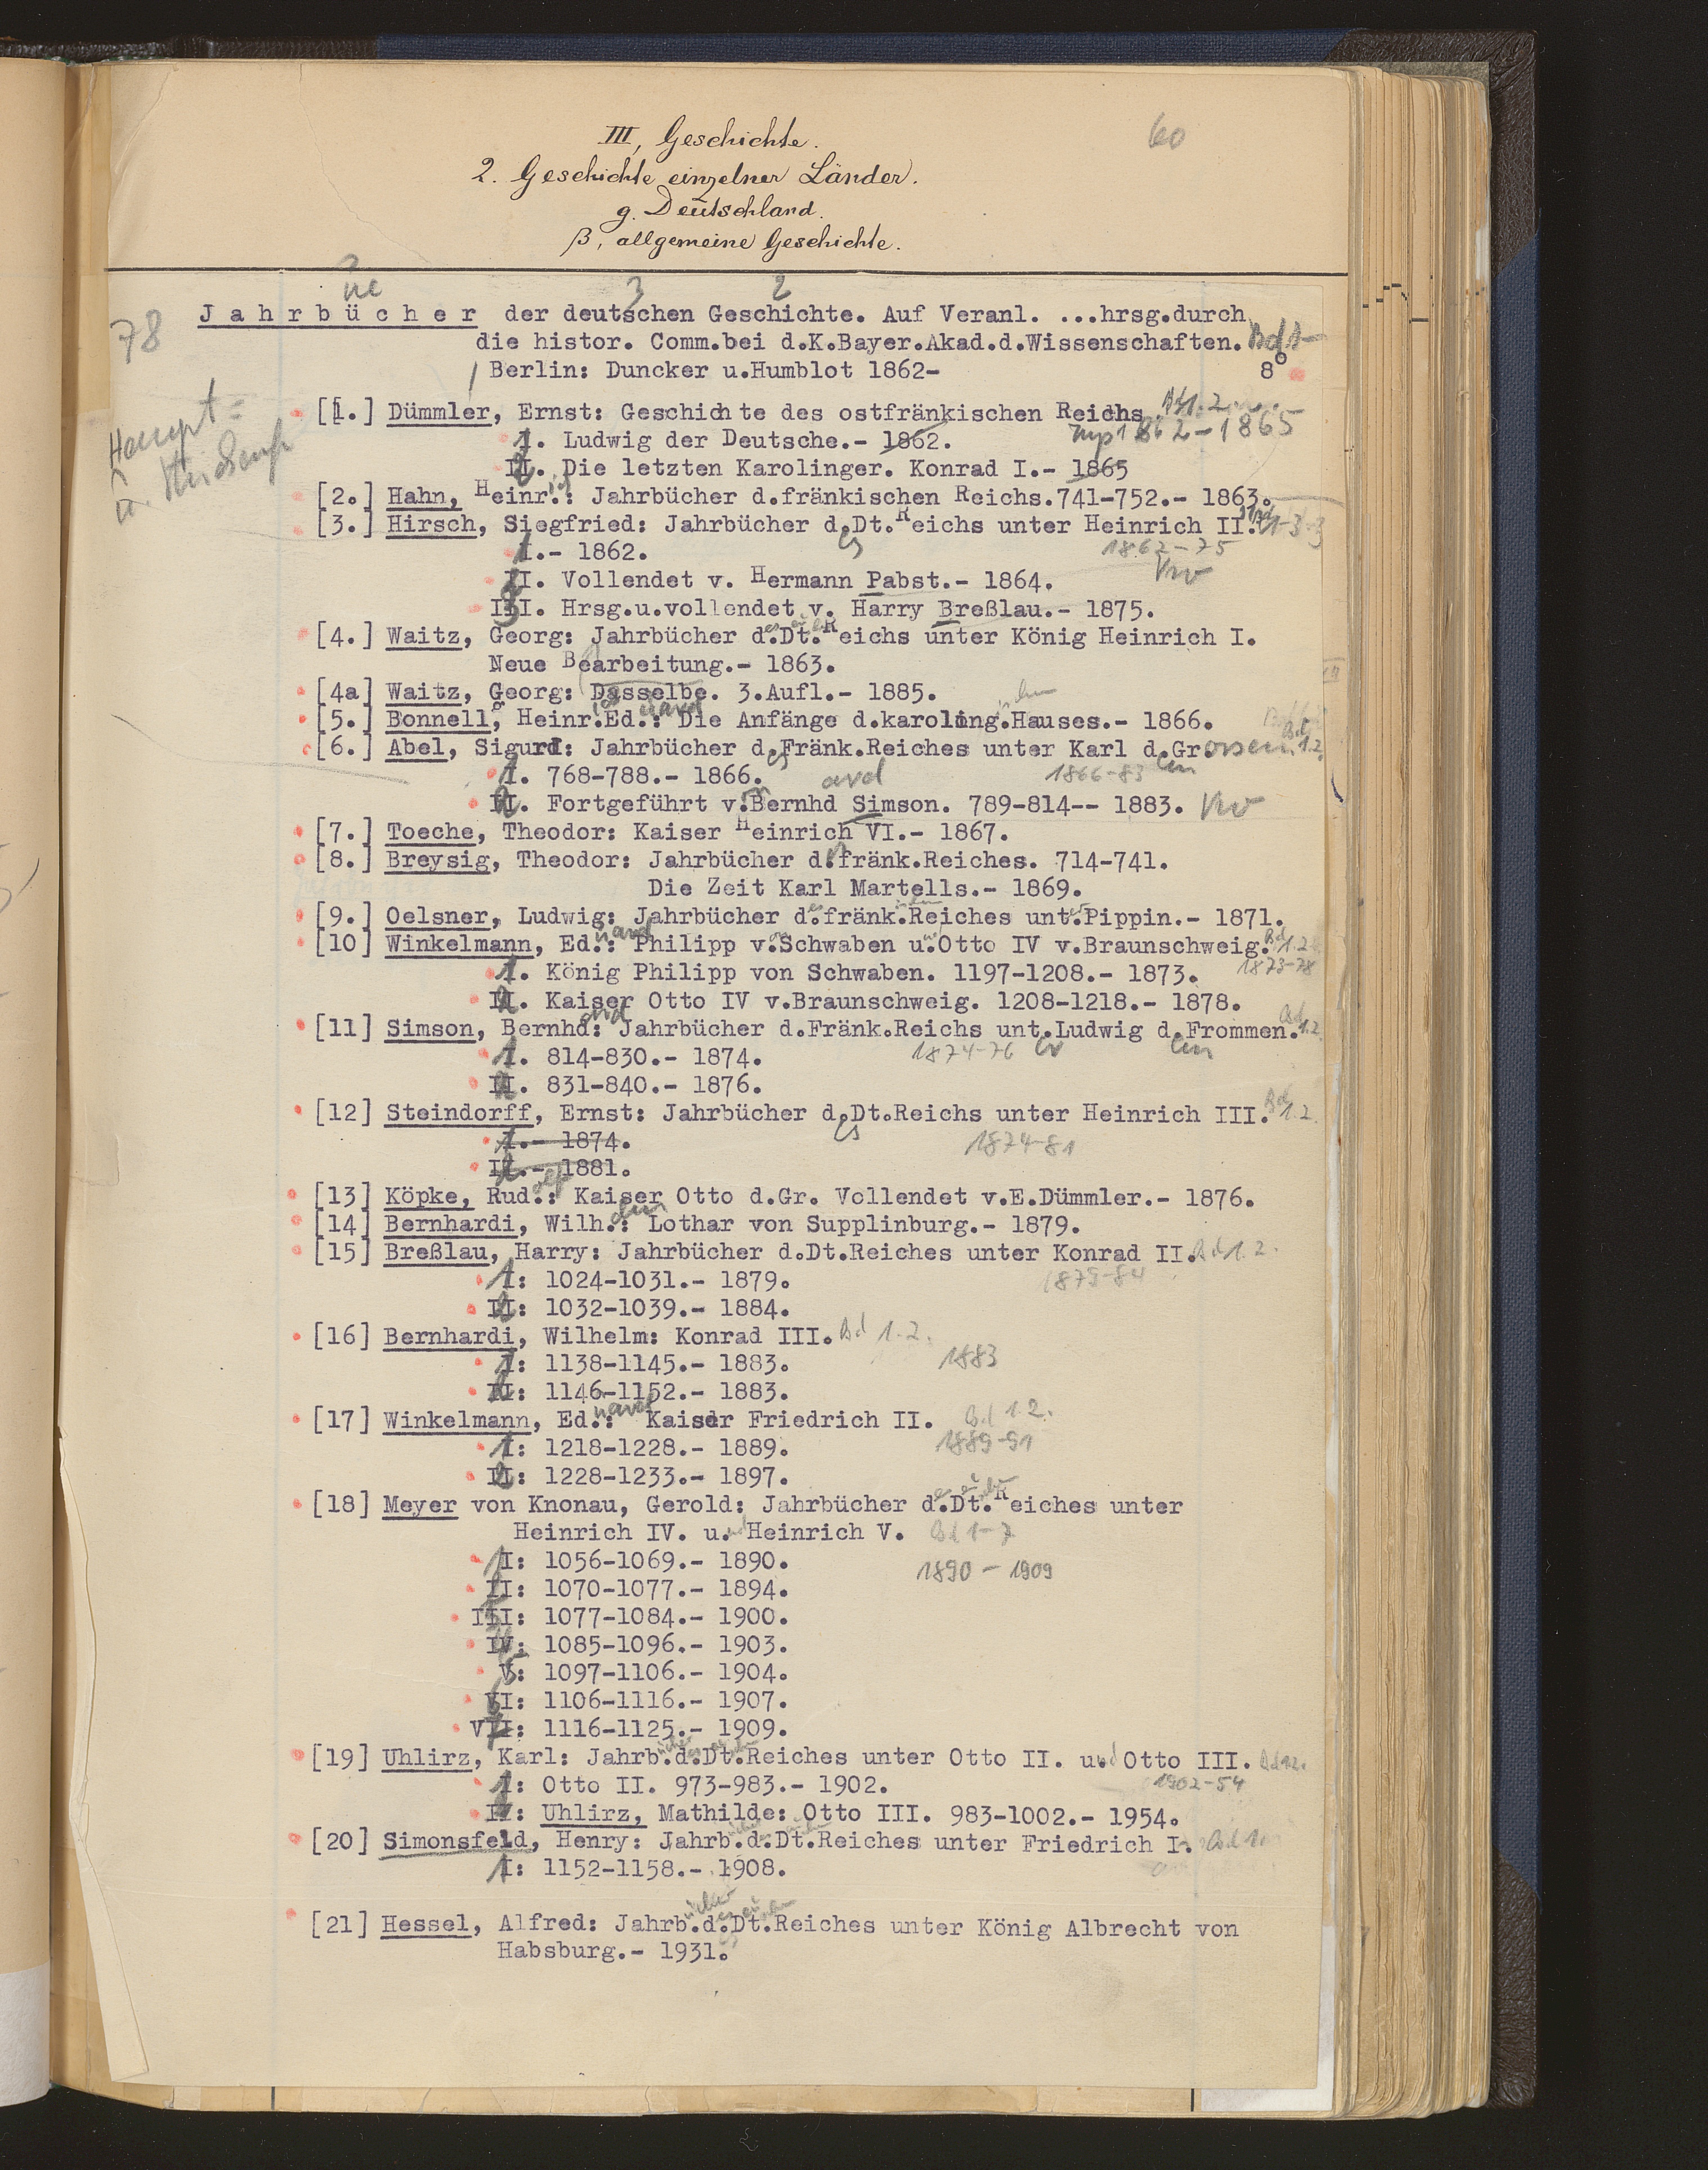 60
III, Geschichte.
2. Geschichte einzelner Länder.
g. Deutschland.
β, allgemeine Geschichte.
3 2
78 Jahrbücher der deutschen Geschichte. Auf Veranl. ...hrsg.durch
die histor. Comm.bei d.K.Bayer.Akad.d.Wissenschaften. Bd 1-
Berlin: Duncker u.Humblot 1862- 8°
Haupt=
[1.] Dümmler, Ernst: Geschichte des ostfränkischen Reichs. Bd 1.2.
1862-1865
I. Ludwig der Deutsche.- 1862.
II. Die letzten Karolinger. Konrad I.- 1865
[2.] Hahn, Heinr.: Jahrbücher d.fränkischen Reichs.741-752.- 1863.
[3.] Hirsch, Siegfried: Jahrbücher d.Dt.Reichs unter Heinrich II. Bd 1-3
es 1862-75
I.- 1862.
II. Vollendet v. Hermann Pabst.- 1864.
III. Hrsg.u.vollendet v. Harry Breßlau.- 1875.
[4.] Waitz, Georg: Jahrbücher d.Dt.Reichs unter König Heinrich I.
Neue Bearbeitung.- 1863.
[4a] Waitz, Georg: Dasselbe. 3.Aufl.- 1885.
[5.] Bonnell, Heinr.Ed.: Die Anfänge d.karoling.Hauses.- 1866.
[6.] Abel, Sigurd: Jahrbücher d.Fränk.Reiches unter Karl d.Grossen Bd 1.2.
es 1866-83 em
I. 768-788.- 1866.
II. Fortgeführt v.Bernhd Simson. 789-814-- 1883.
[7.] Toeche, Theodor: Kaiser Heinrich VI.- 1867.
[8.] Breysig, Theodor: Jahrbücher d.fränk.Reiches. 714-741.
Die Zeit Karl Martells.- 1869.
[9.] Oelsner, Ludwig: Jahrbücher d.fränk.Reiches unt.Pippin.- 1871.
[10] Winkelmann, Ed.: Philipp v.Schwaben u.Otto IV v.Braunschweig. Bd 1.2
1873-78
I. König Philipp von Schwaben. 1197-1208.- 1873.
II. Kaiser Otto IV v.Braunschweig. 1208-1218.- 1878.
[11] Simson, Bernhd: Jahrbücher d.Fränk.Reichs unt.Ludwig d.Frommen. Bd 1.2.
1874-76 er em
I. 814-830.- 1874.
II. 831-840.- 1876.
[12] Steindorff, Ernst: Jahrbücher d.Dt.Reichs unter Heinrich III. Bd 1.2.
es 1874-81
I.- 1874.
II.- 1881.
[13] Köpke, Rud.: Kaiser Otto d.Gr. Vollendet v.E.Dümmler.- 1876.
[14] Bernhardi, Wilh.: Lothar von Supplinburg.- 1879.
[15] Breßlau, Harry: Jahrbücher d.Dt.Reiches unter Konrad II. Bd 1.2.
1879-84
I: 1024-1031.- 1879.
II: 1032-1039.- 1884.
[16] Bernhardi, Wilhelm: Konrad III. Bd 1.2.
I: 1138-1145.- 1883. 1883
II: 1146-1152.- 1883.
[17] Winkelmann, Ed.: Kaiser Friedrich II. Bd 1.2.
I: 1218-1228.- 1889. 1889-91
II: 1228-1233.- 1897.
[18] Meyer von Knonau, Gerold: Jahrbücher d.Dt.Reiches unter
Heinrich IV. u. Heinrich V. Bd 1-7
I: 1056-1069.- 1890. 1890-1909
II: 1070-1077.- 1894.
III: 1077-1084.- 1900.
IV: 1085-1096.- 1903.
V: 1097-1106.- 1904.
VI: 1106-1116.- 1907.
VII: 1116-1125.- 1909.
[19] Uhlirz, Karl: Jahrb.d.Dt.Reiches unter Otto II. und Otto III. Bd 1.2.
1902-54
I: Otto II. 973-983.- 1902.
II: Uhlirz, Mathilde: Otto III. 983-1002.- 1954.
[20] Simonsfeld, Henry: Jahrb.d.Dt.Reiches unter Friedrich I. Bd 1.
I: 1152-1158.- 1908.
[21] Hessel, Alfred: Jahrb.d.Dt.Reiches unter König Albrecht von
Habsburg.- 1931.